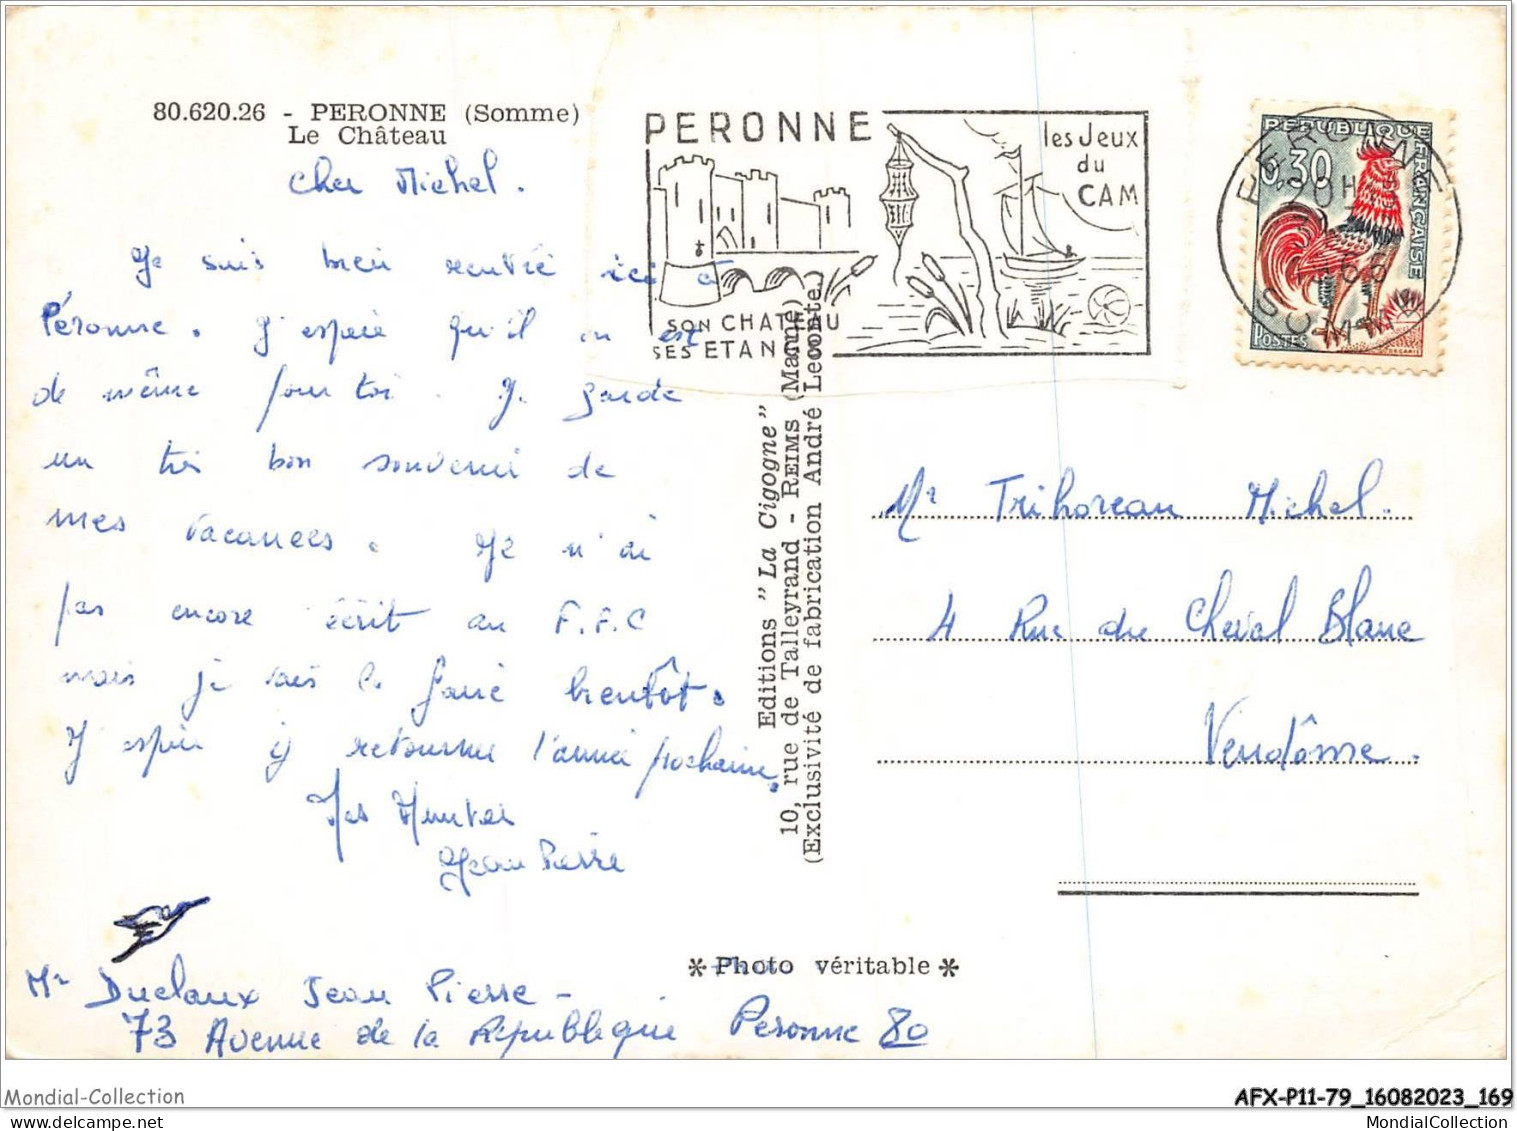 80.620.26 - PERONNE (Somme)
Le Château
Cher Michel.
Je suis bien rentré ici à
Péronne. J'espère qu'il en est
de même pour toi. Je garde
un très bon souvenir de
mes vacances. Je n'ai
pas encore écrit au F.F.C
mais je vais le faire bientôt.
J'espère y retourner l'année prochaine.
Jean Pierre
Mr Duclaux Jean Pierre -
73 Avenue de la République Peronne 80
PERONNE
les Jeux
du
CAM
SON CHATEAU
SES ETANGS
REPUBLIQUE FRANÇAISE
0,30
POSTES
PERONNE
SOMME
Editions "La Cigogne"
10, rue de Talleyrand - REIMS (Marne)
(Exclusivité de fabrication André Leconte.)
Mr Trihoreau Michel.
4 Rue du Cheval Blanc
Vendôme.
* Photo véritable *
Mondial-Collection
AFX-P11-79_16082023_169
MondialCollection